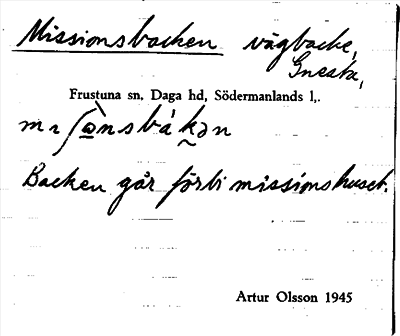 Missionsbacken vägbacke,
Gnesta,
Frustuna sn, Daga hd, Södermanlands l,.
Backen går förbi missionshuset.
Artur Olsson 1945